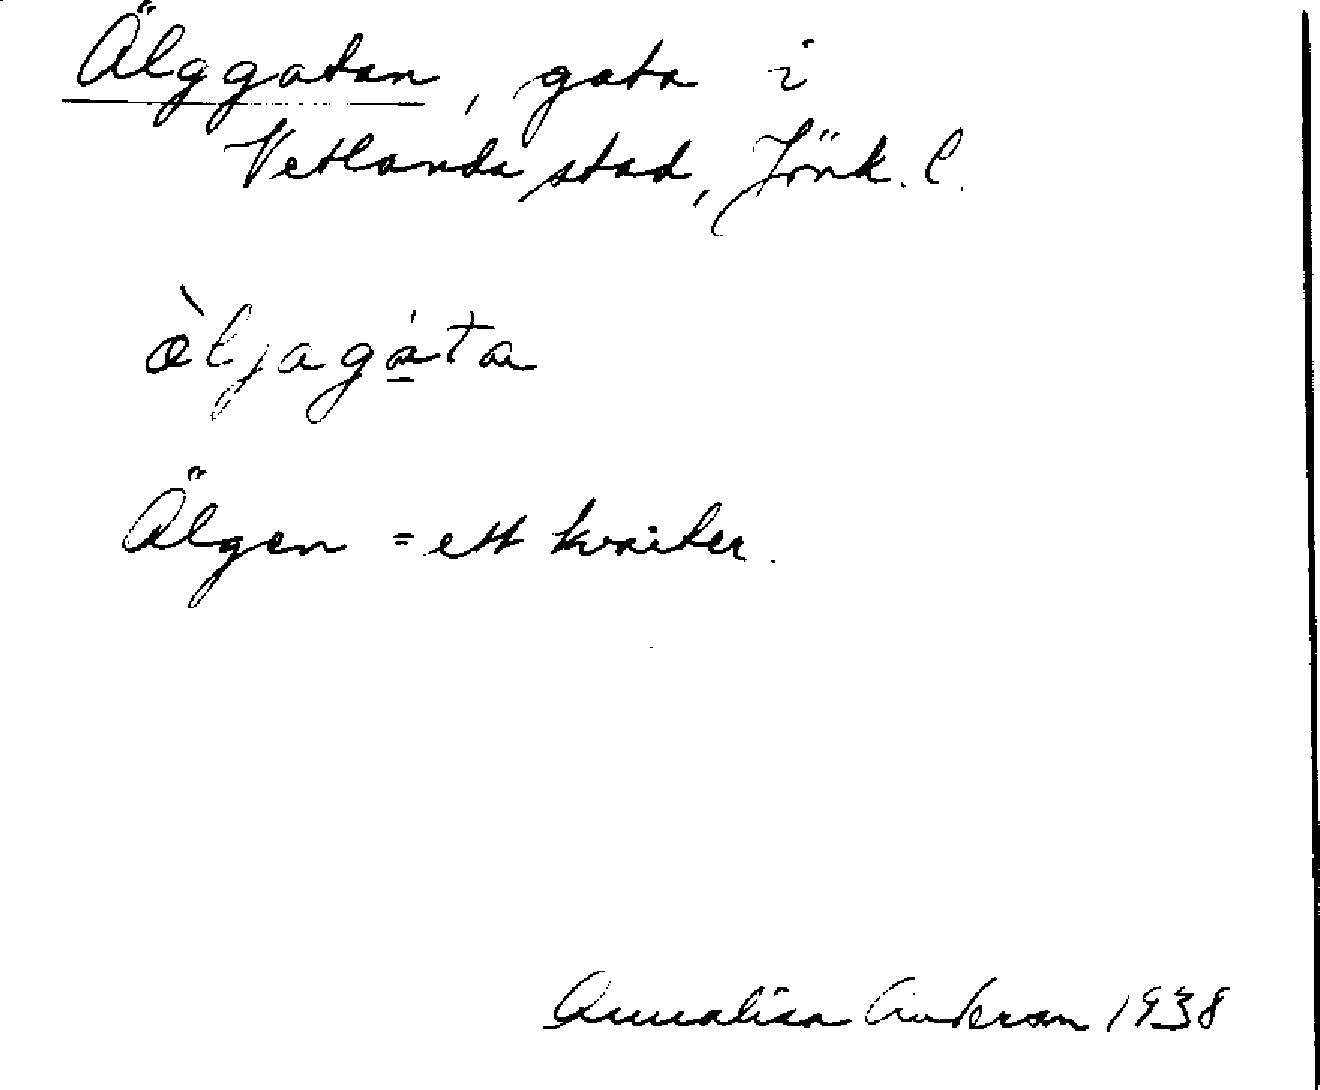 Älggatan, gata i
Vetlanda stad, Jönk. l.
æ̀ljagá̱ta
Älgen = ett kvarter.
Annalisa Anderson 1938